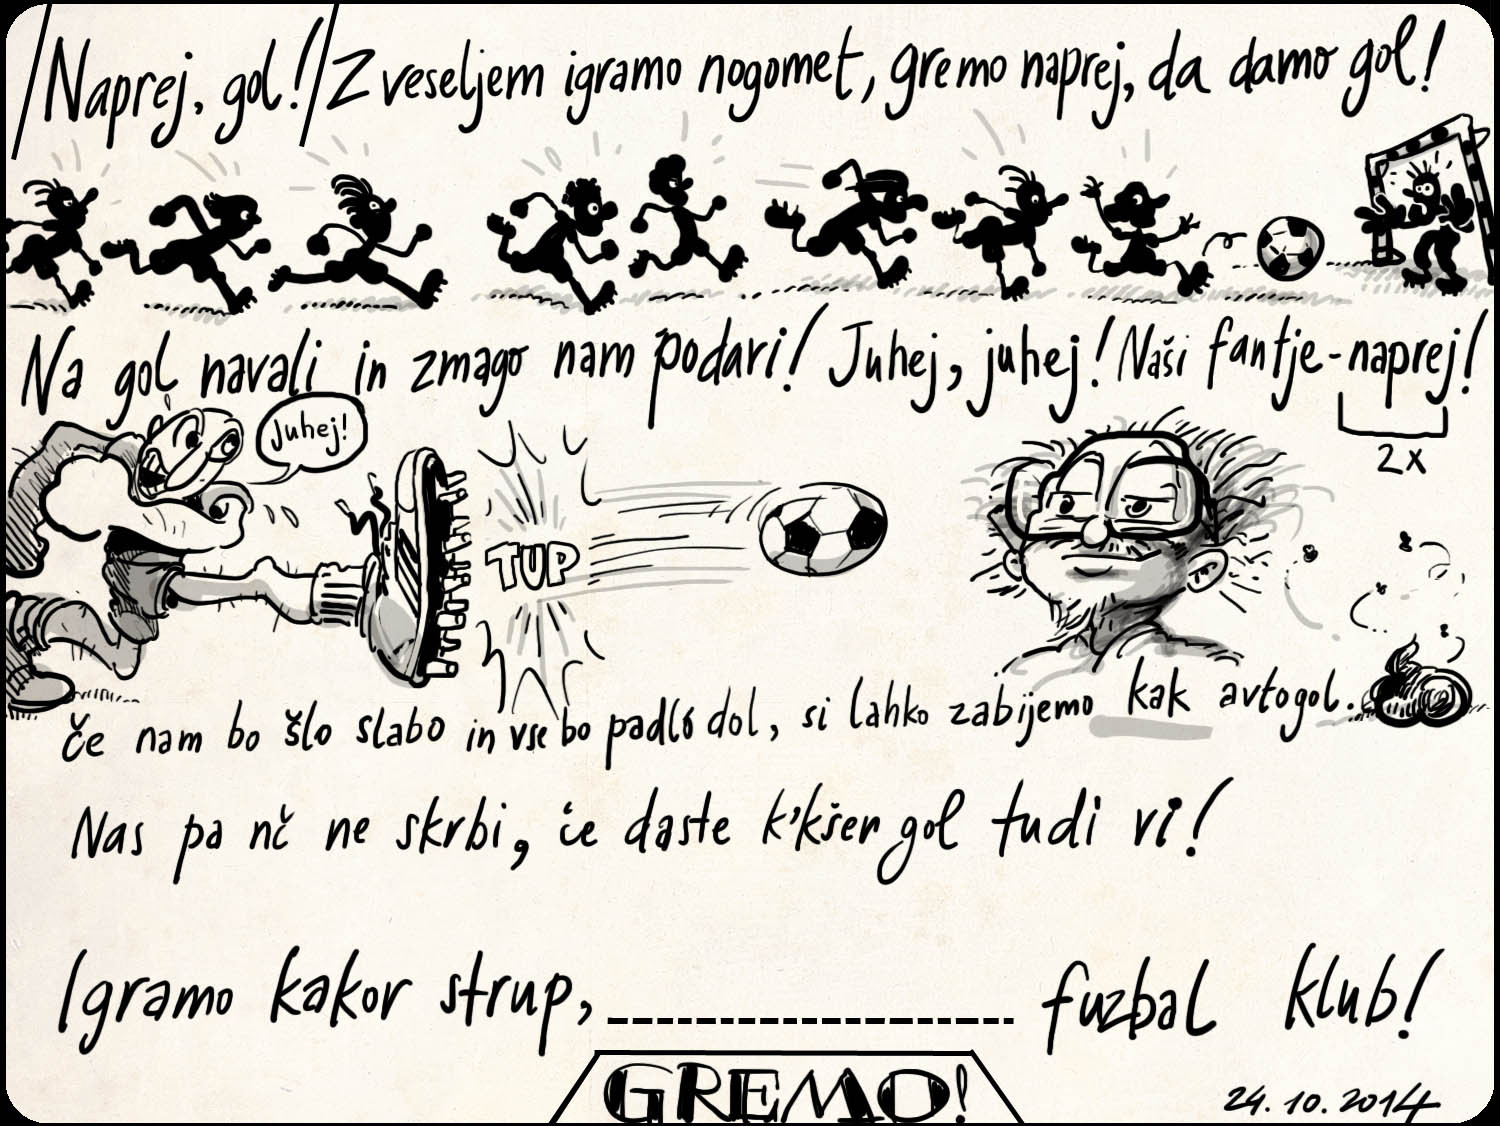 /Naprej, gol!/ Z veseljem igramo nogomet, gremo naprej, da damo gol!
Na gol navali in zmago nam podari! Juhej, juhej! Naši fantje - naprej!
2x
Juhej!
TUP
če nam bo šlo slabo in vse bo padlo dol, si lahko zabijemo kak avtogol.
Nas pa nč ne skrbi, če daste k'kšer gol tudi vi!
Igramo kakor strup, ------------------- fuzbal klub!
GREMO!
24. 10. 2014